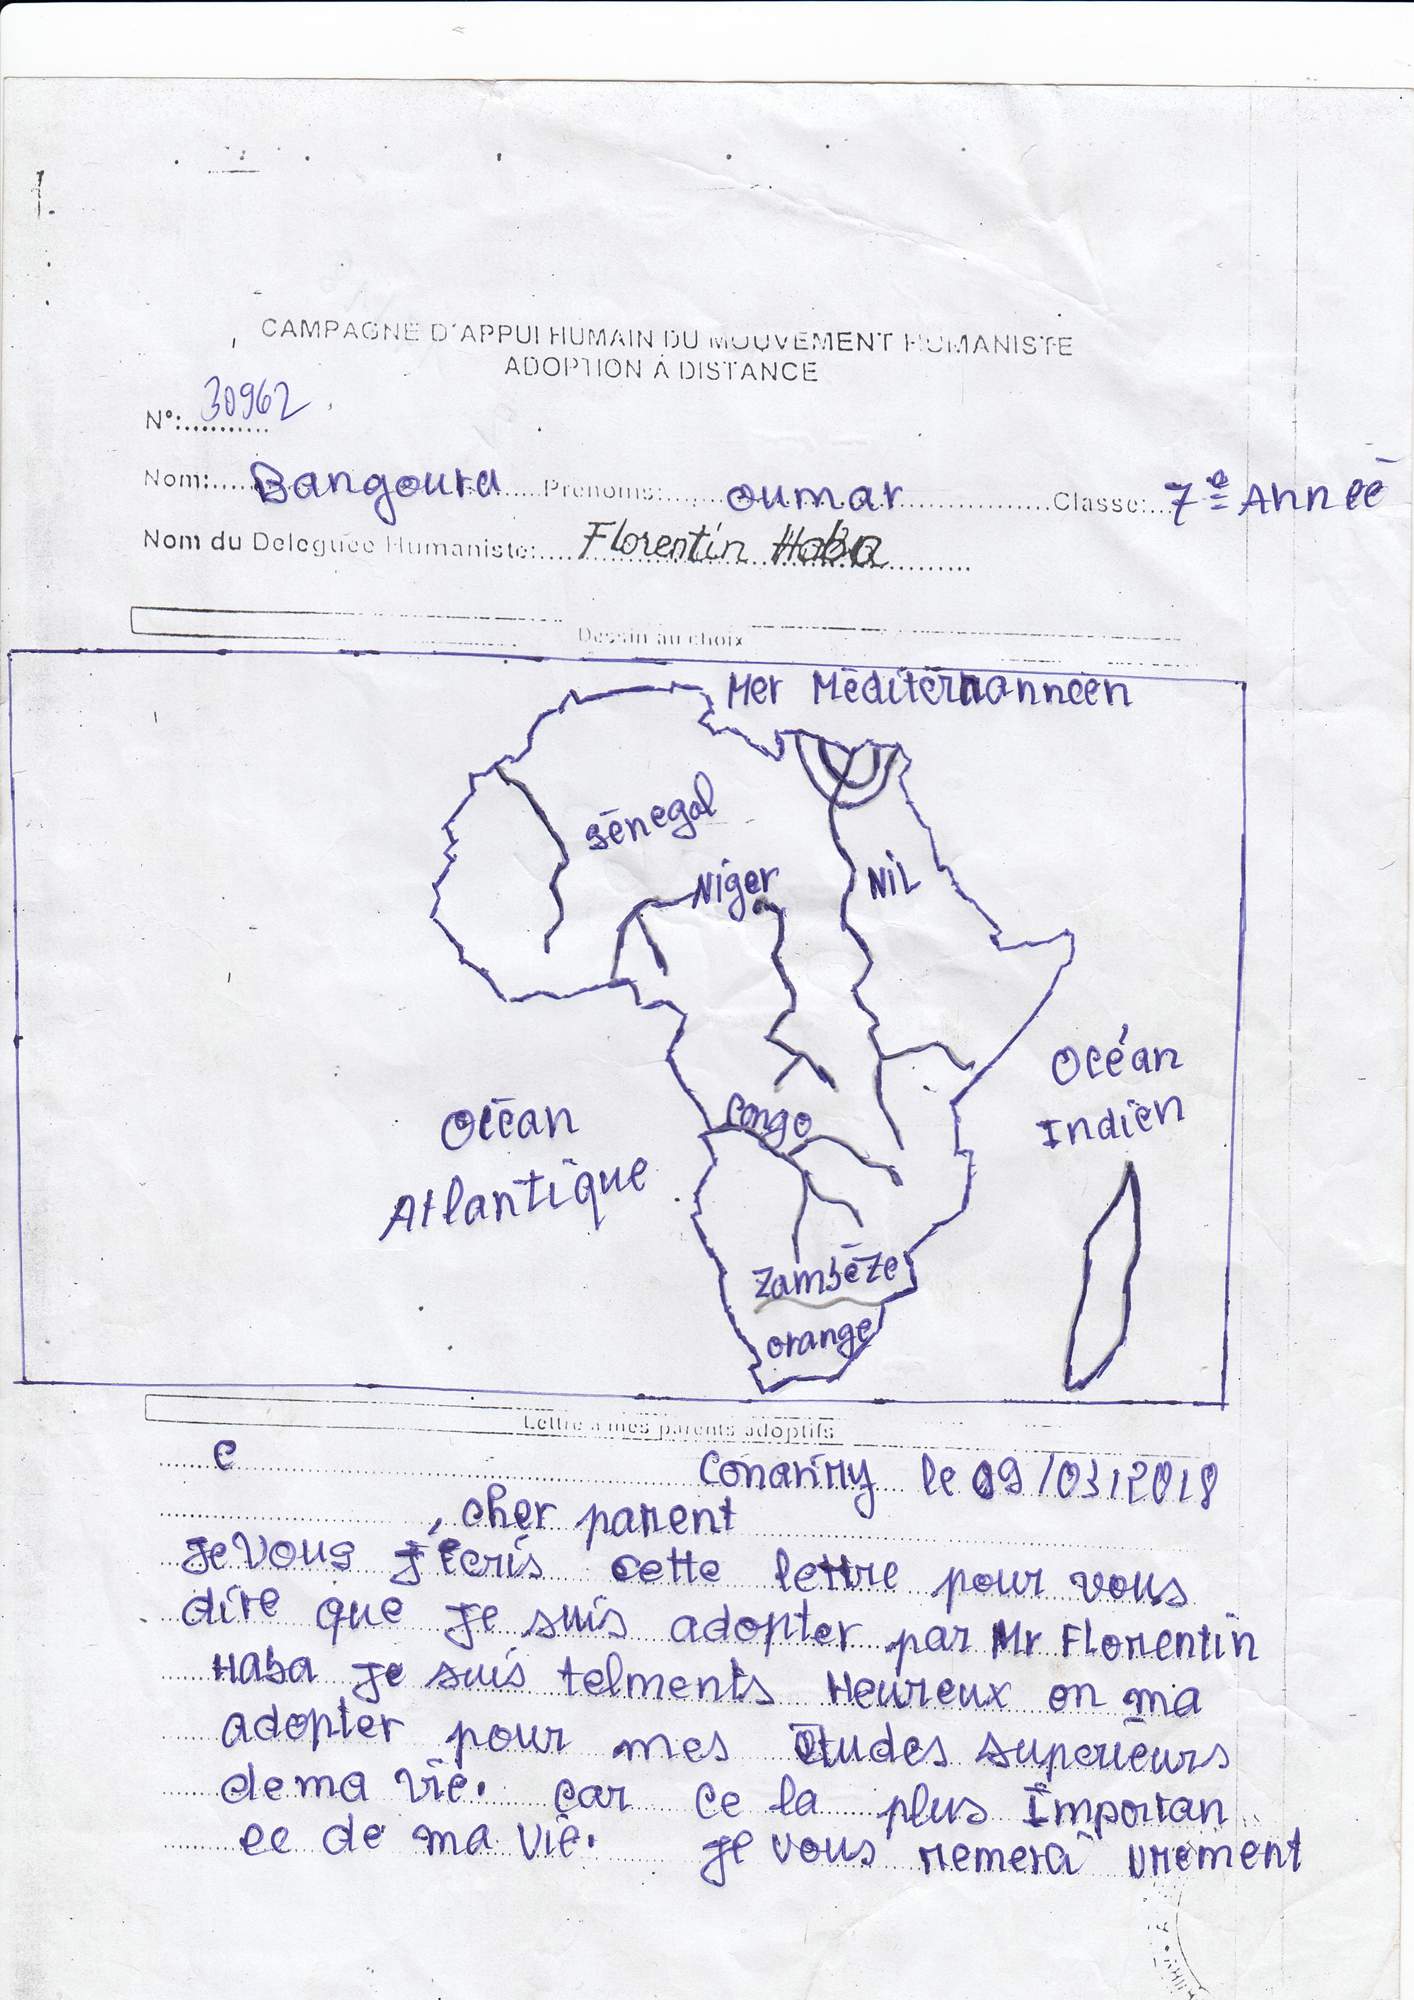 CAMPAGNE D'APPUI HUMAIN DU MOUVEMENT HUMANISTE
ADOPTION À DISTANCE
N°: 30962
Nom: Bangoura Prénoms: oumar Classe: 7e Année
Nom du Deleguée Humaniste: Florentin Haba
Dessin au choix
Mer Méditérranneén
sénegal
Niger
NiL
Océan
Indién
Congo
Océan
Atlantique
Zambèze
orange
Lettre a mes parents adoptifs
c
Conakry le 09/03/2018
cher parent
Je vous j'écris cette lettre pour vous
dire que je suis adopter par Mr Florentin
Haba je suis telments Heureux on ma
adopter pour mes études supérieurs
de ma vie. car ce la plus Importan
ce de ma vie. je vous remerai vrement